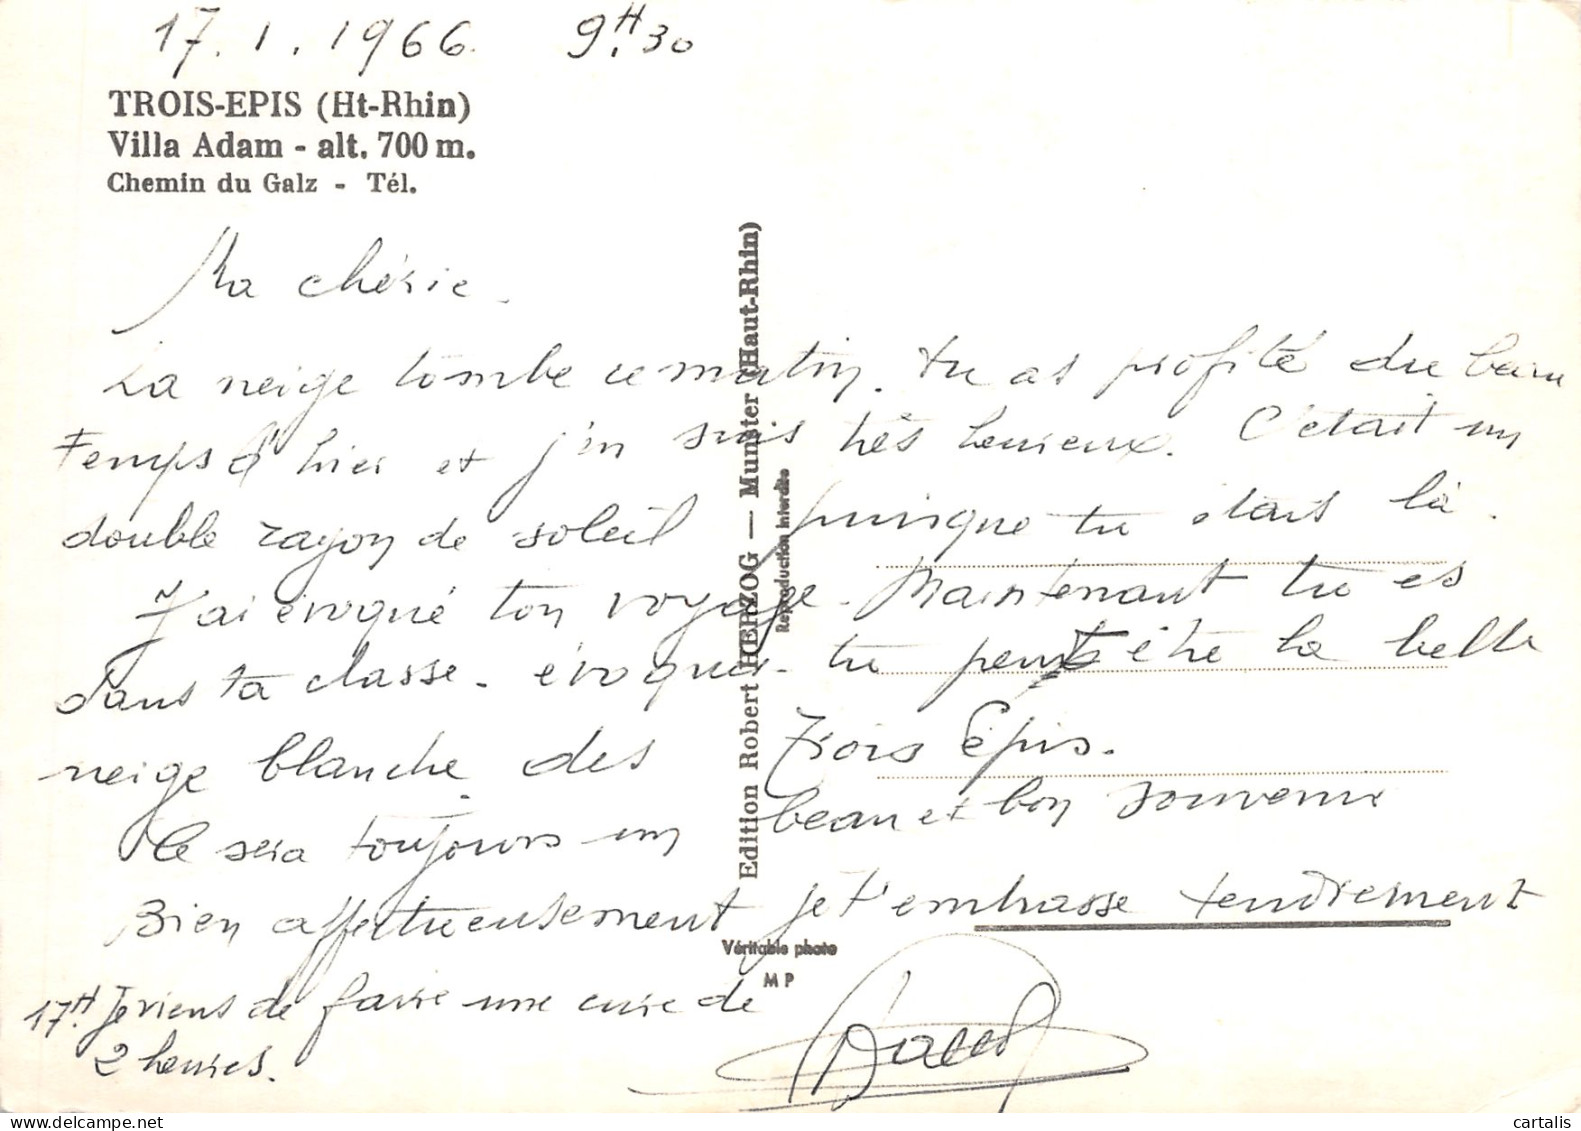 17.1.1966 9H.30
TROIS-EPIS (Ht-Rhin)
Villa Adam - alt. 700 m.
Chemin du Galz - Tél.
Ma chérie.
La neige tombe ce matin. Tu as profité du beau
temps d'hier et j'en suis très heureux. C'était un
double rayon de soleil puisque tu étais là.
J'ai évoqué ton voyage. Maintenant tu es
dans ta classe. évoques-tu peut être la belle
neige blanche des Trois Epis.
Ce sera toujours un beau et bon souvenir
Bien affectueusement je t'embrasse tendrement
17H. Je viens de faire une cure de
2 heures.
Edition Robert HERZOG — Munster (Haut-Rhin)
Reproduction interdite
Véritable photo
M P
cartalis
www.delcampe.net